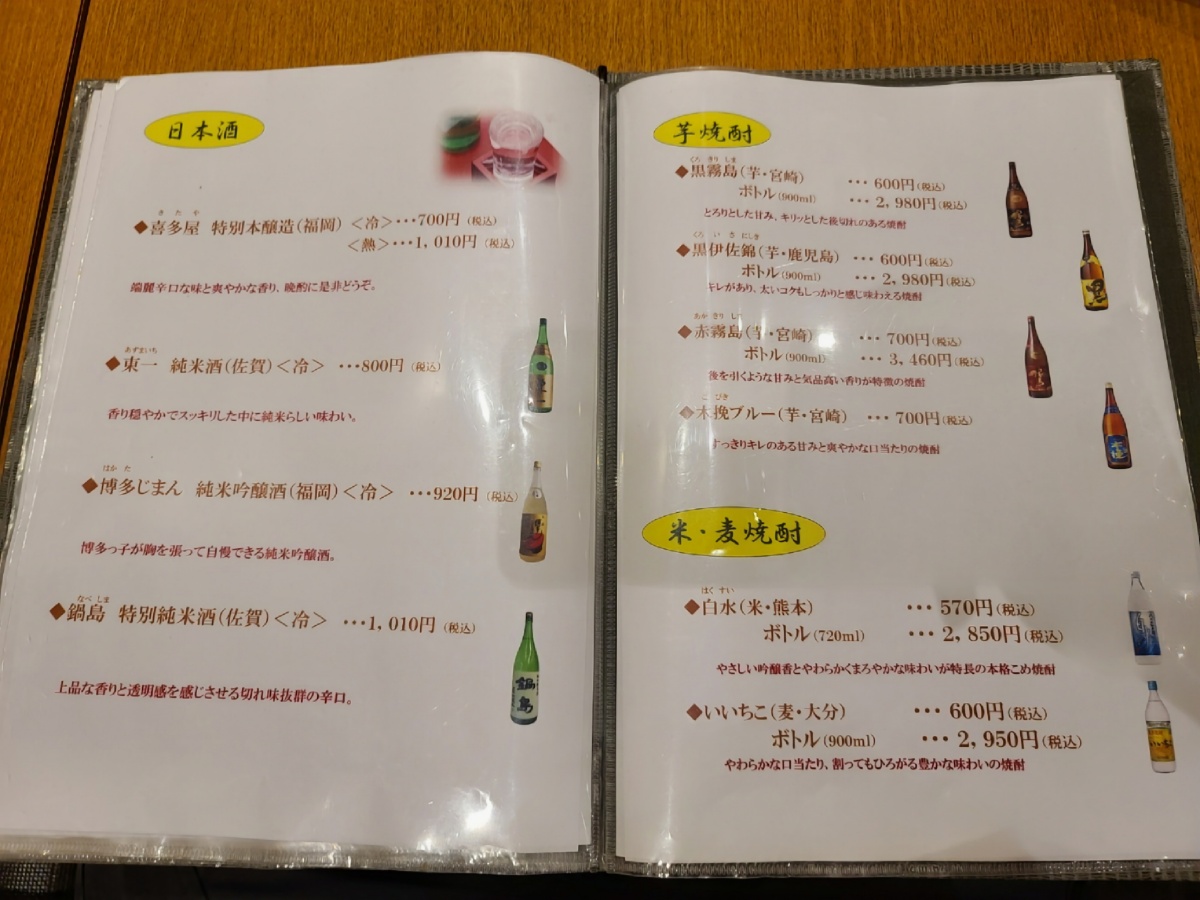 日本酒
きたや
◆喜多屋 特別本醸造(福岡)<冷>…700円(税込)
<熱>…1,010円(税込)
端麗辛口な味と爽やかな香り、晩酌に是非どうぞ。
あずまいち
◆東一 純米酒(佐賀)<冷> …800円(税込)
香り穏やかでスッキリした中に純米らしい味わい。
はかた
◆博多じまん 純米吟醸酒(福岡)<冷> …920円(税込)
博多っ子が胸を張って自慢できる純米吟醸酒。
なべしま
◆鍋島 特別純米酒(佐賀)<冷> …1,010円(税込)
上品な香りと透明感を感じさせる切れ味抜群の辛口。
鍋島
芋焼酎
くろきりしま
◆黒霧島(芋・宮崎) …600円(税込)
ボトル(900ml) …2,980円(税込)
とろりとした甘み、キリッとした後切れのある焼酎
くろいさにしき
◆黒伊佐錦(芋・鹿児島) …600円(税込)
ボトル(900ml) …2,980円(税込)
キレがあり、太いコクもしっかりと感じ味わえる焼酎
あかきりし
◆赤霧島(芋・宮崎) …700円(税込)
ボトル(900ml) …3,460円(税込)
後を引くような甘みと気品高い香りが特徴の焼酎
こびき
◆木挽ブルー(芋・宮崎) …700円(税込)
すっきりキレのある甘みと爽やかな口当たりの焼酎
米・麦焼酎
はくすい
◆白水(米・熊本) …570円(税込)
ボトル(720ml) …2,850円(税込)
やさしい吟醸香とやわらかくまろやかな味わいが特長の本格こめ焼酎
◆いいちこ(麦・大分) …600円(税込)
ボトル(900ml) …2,950円(税込)
やわらかな口当たり、割ってもひろがる豊かな味わいの焼酎